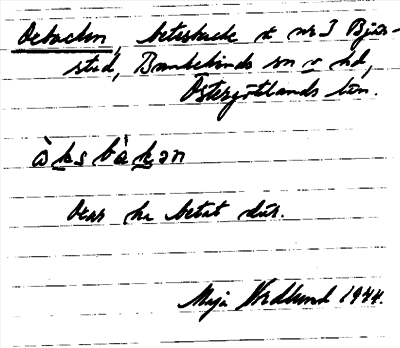 Oxbacken, betesbacke t nr 3 Bjär-
stad, Bankekinds sn o hd,
Östergötlands län.
òksbàkən
Oxar ha betat där.
Maja Nordlund 1944.